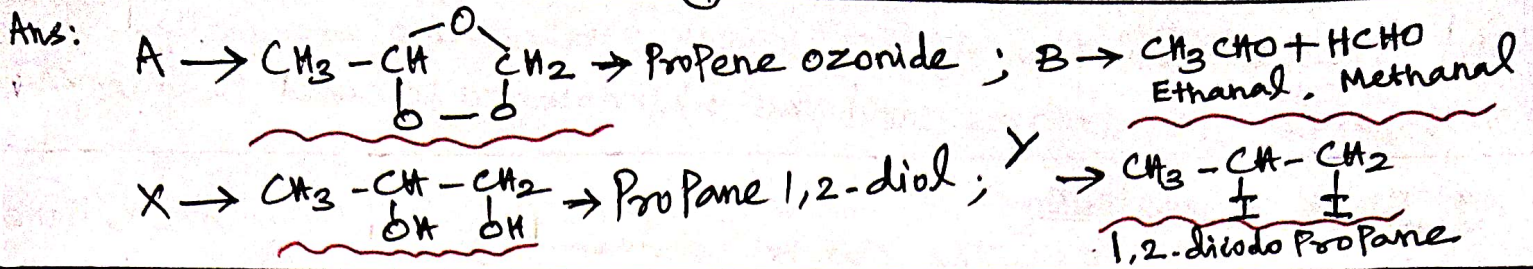 Ans: A → CH3 – CH O CH2 → Propene ozonide ; B → CH3 CHO + HCHO
O – O Ethanal, Methanal
X → CH3 – CH – CH2 → Propane 1,2-diol ; Y → CH3 – CH – CH2
OH OH I I
1,2-diiodo Propane